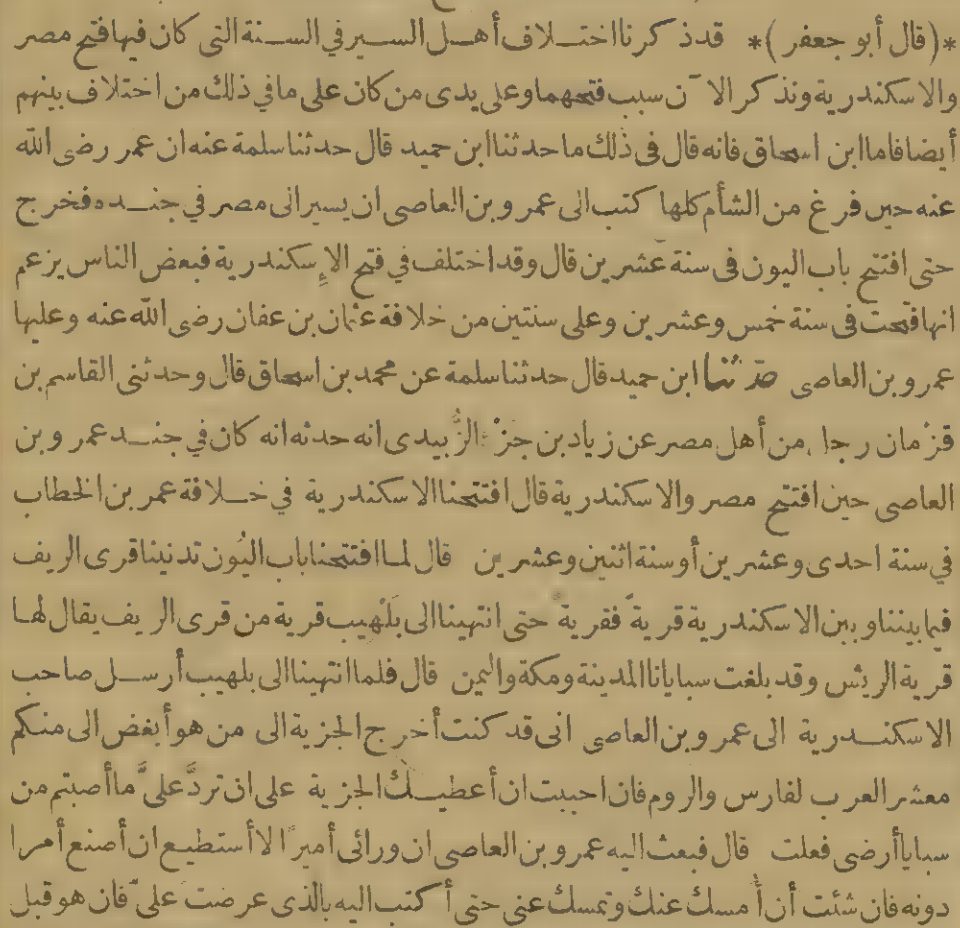 *(قال أبو جعفر)* قد ذكرنا اختلاف أهل السير في السنة التي كان فيها فتح مصر
والاسكندرية ونذكر الآن سبب فتحهما وعلى يدى من كان على ما في ذلك من اختلاف بينهم
أيضا فاما ابن اسحاق فانه قال في ذلك ما حدثنا ابن حميد قال حدثنا سلمة عنه ان عمر رضى الله
عنه حين فرغ من الشأم كلها كتب الى عمرو بن العاصى ان يسير الى مصر في جنده فخرج
حتى افتتح باب اليون فى سنة عشرين قال وقد اختلف في فتح الإسكندرية فبعض الناس يزعم
انها فتحت فى سنة خمس وعشرين وعلى سنتين من خلافة عثمان بن عفان رضى الله عنه وعليها
عمرو بن العاصى حدثنا ابن حميد قال حدثنا سلمة عن محمد بن اسحاق قال وحدثنى القاسم بن
قزمان رجل من أهل مصر عن زياد بن جزء الزُّبيدى انه حدثه انه كان في جند عمرو بن
العاصى حين افتتح مصر والاسكندرية قال افتتحنا الاسكندرية في خلافة عمر بن الخطاب
في سنة احدى وعشرين أو سنة اثنين وعشرين قال لما افتتحنا باب اليُون تدنينا قرى الريف
فيما بيننا وبين الاسكندرية قرية فقرية حتى انتهينا الى بَلْهِيب قرية من قرى الريف يقال لها
قرية الريش وقد بلغت سبايانا المدينة ومكة واليمن قال فلما انتهينا الى بلهيب أرسل صاحب
الاسكندرية الى عمرو بن العاصى انى قد كنت أخرج الجزية الى من هو أبغض الى منكم
معشر العرب لفارس والروم فان احببت ان أعطيك الجزية على ان تردَّ علىَّ ما أصبتم من
سبايا أرضى فعلت قال فبعث اليه عمرو بن العاصى ان ورائى أميرًا لا أستطيع ان أصنع أمرا
دونه فان شئت أن أُمسك عنك وتمسك عنى حتى أكتب اليه بالذى عرضت علىَّ فان هو قبل